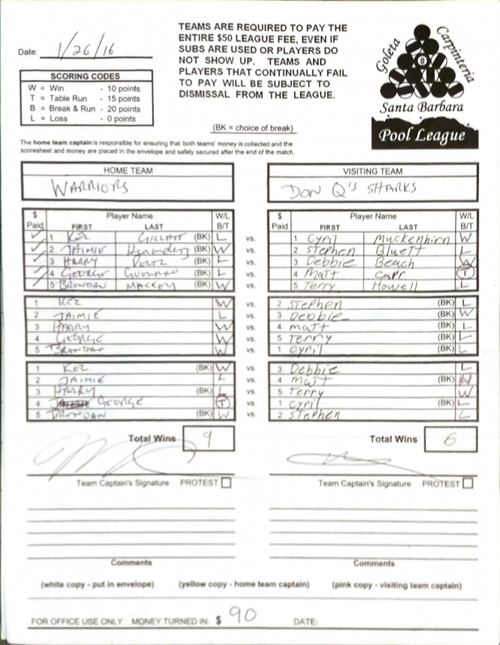 Date: 1/26/16
TEAMS ARE REQUIRED TO PAY THE
ENTIRE $50 LEAGUE FEE, EVEN IF
SUBS ARE USED OR PLAYERS DO
NOT SHOW UP. TEAMS AND
PLAYERS THAT CONTINUALLY FAIL
TO PAY WILL BE SUBJECT TO
DISMISSAL FROM THE LEAGUE.
Goleta
Carpinteria
Santa Barbara
Pool League
SCORING CODES
W = Win - 10 points
T = Table Run - 15 points
B = Break & Run - 20 points
L = Loss - 0 points
(BK = choice of break)
The home team captain is responsible for ensuring that both teams' money is collected and the
scoresheet and money are placed in the envelope and safely secured after the end of the match.
HOME TEAM VISITING TEAM
WARRIORS DON Q'S SHARKS
$ Player Name W/L $ Player Name W/L
Paid FIRST LAST B/T Paid FIRST LAST B/T
1 KEZ (BK) L vs. 1 Cyril Muckenhirn W
2 JAIMIE Hernandez (BK) W vs. 2 Stephen Bluett L
3 HARRY (BK) L vs. 3 Debbie Beach W
4 GEORGE (BK) L vs. 4 Matt Carr T
5 BRENDAN MACKEY (BK) W vs. 5 Terry Howell L
1 KEZ W vs. 2 Stephen (BK) L
2 JAIMIE L vs. 3 Debbie (BK) W
3 HARRY W vs. 4 Matt (BK) L
4 GEORGE W vs. 5 Terry (BK) L
5 BRENDAN W vs. 1 Cyril (BK) L
1 KEZ (BK) W vs. 3 Debbie L
2 JAIMIE L vs. 4 Matt (BK) W
3 HARRY (BK) L vs. 5 Terry W
4 GEORGE T vs. 1 Cyril (BK) L
5 BRENDAN (BK) W vs. 2 Stephen L
Total Wins 9 Total Wins 6
Team Captain's Signature PROTEST Team Captain's Signature PROTEST
Comments Comments
(white copy - put in envelope) (yellow copy - home team captain) (pink copy - visiting team captain)
FOR OFFICE USE ONLY MONEY TURNED IN: $ 90 DATE: